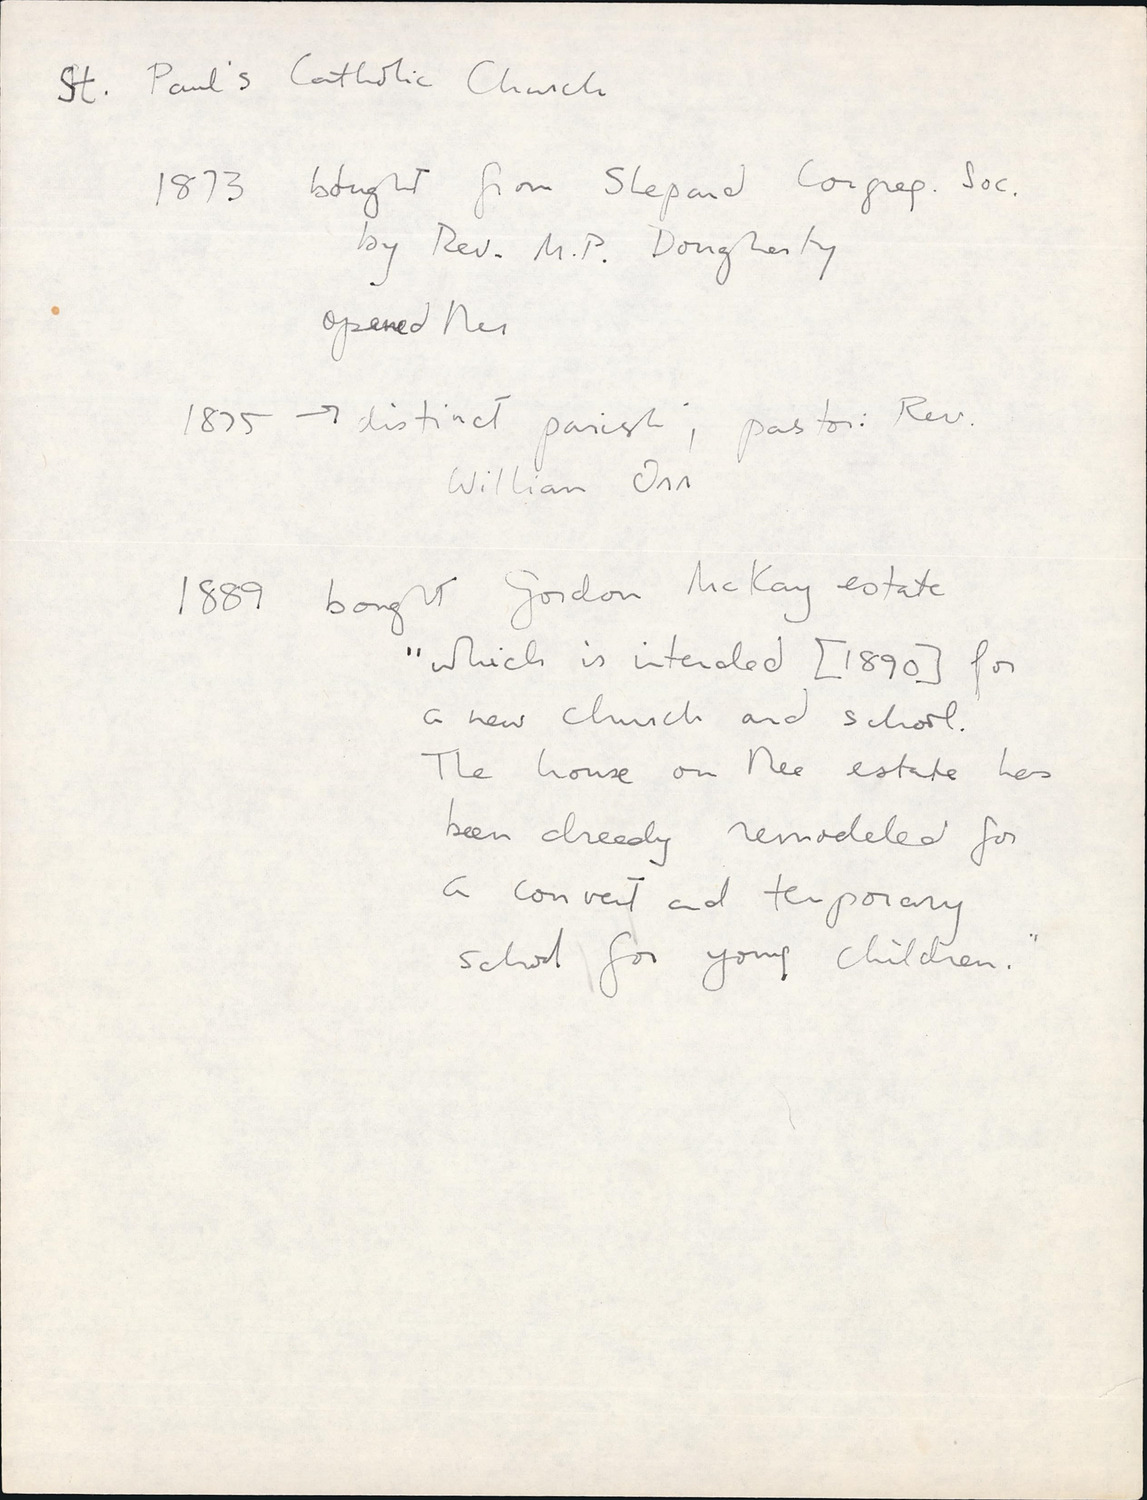 St. Paul's Catholic Church
1873 bought from Shepard Congreg. Soc.
by Rev. M.P. Dougherty
opened then
1875 → distinct parish; pastor: Rev.
William Orr
1889 bought Gordon McKay estate
"which is intended [1890] for
a new church and school.
The house on the estate has
been already remodeled for
a convent and temporary
school for young children."